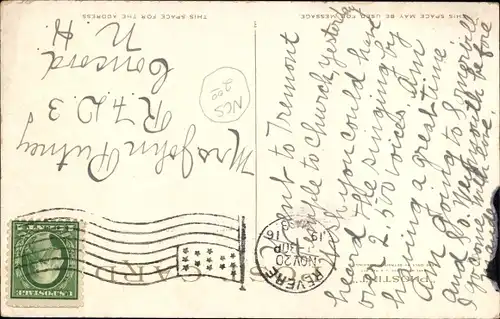 THIS SPACE MAY BE USED FOR MESSAGE
THIS SPACE FOR THE ADDRESS
Went to Tremont
Temple to church yesterday
Wish you could have
heard the singing by
over 2,500 voices. Am
having a great time
Am going to Somerville
and So. Weymouth before
I
with love.
Mrs John Putney
R.F.D. 3
Concord
N. H.
NCS
200
REVERE
NOV 20
1916
POST CARD
U.S. POSTAGE